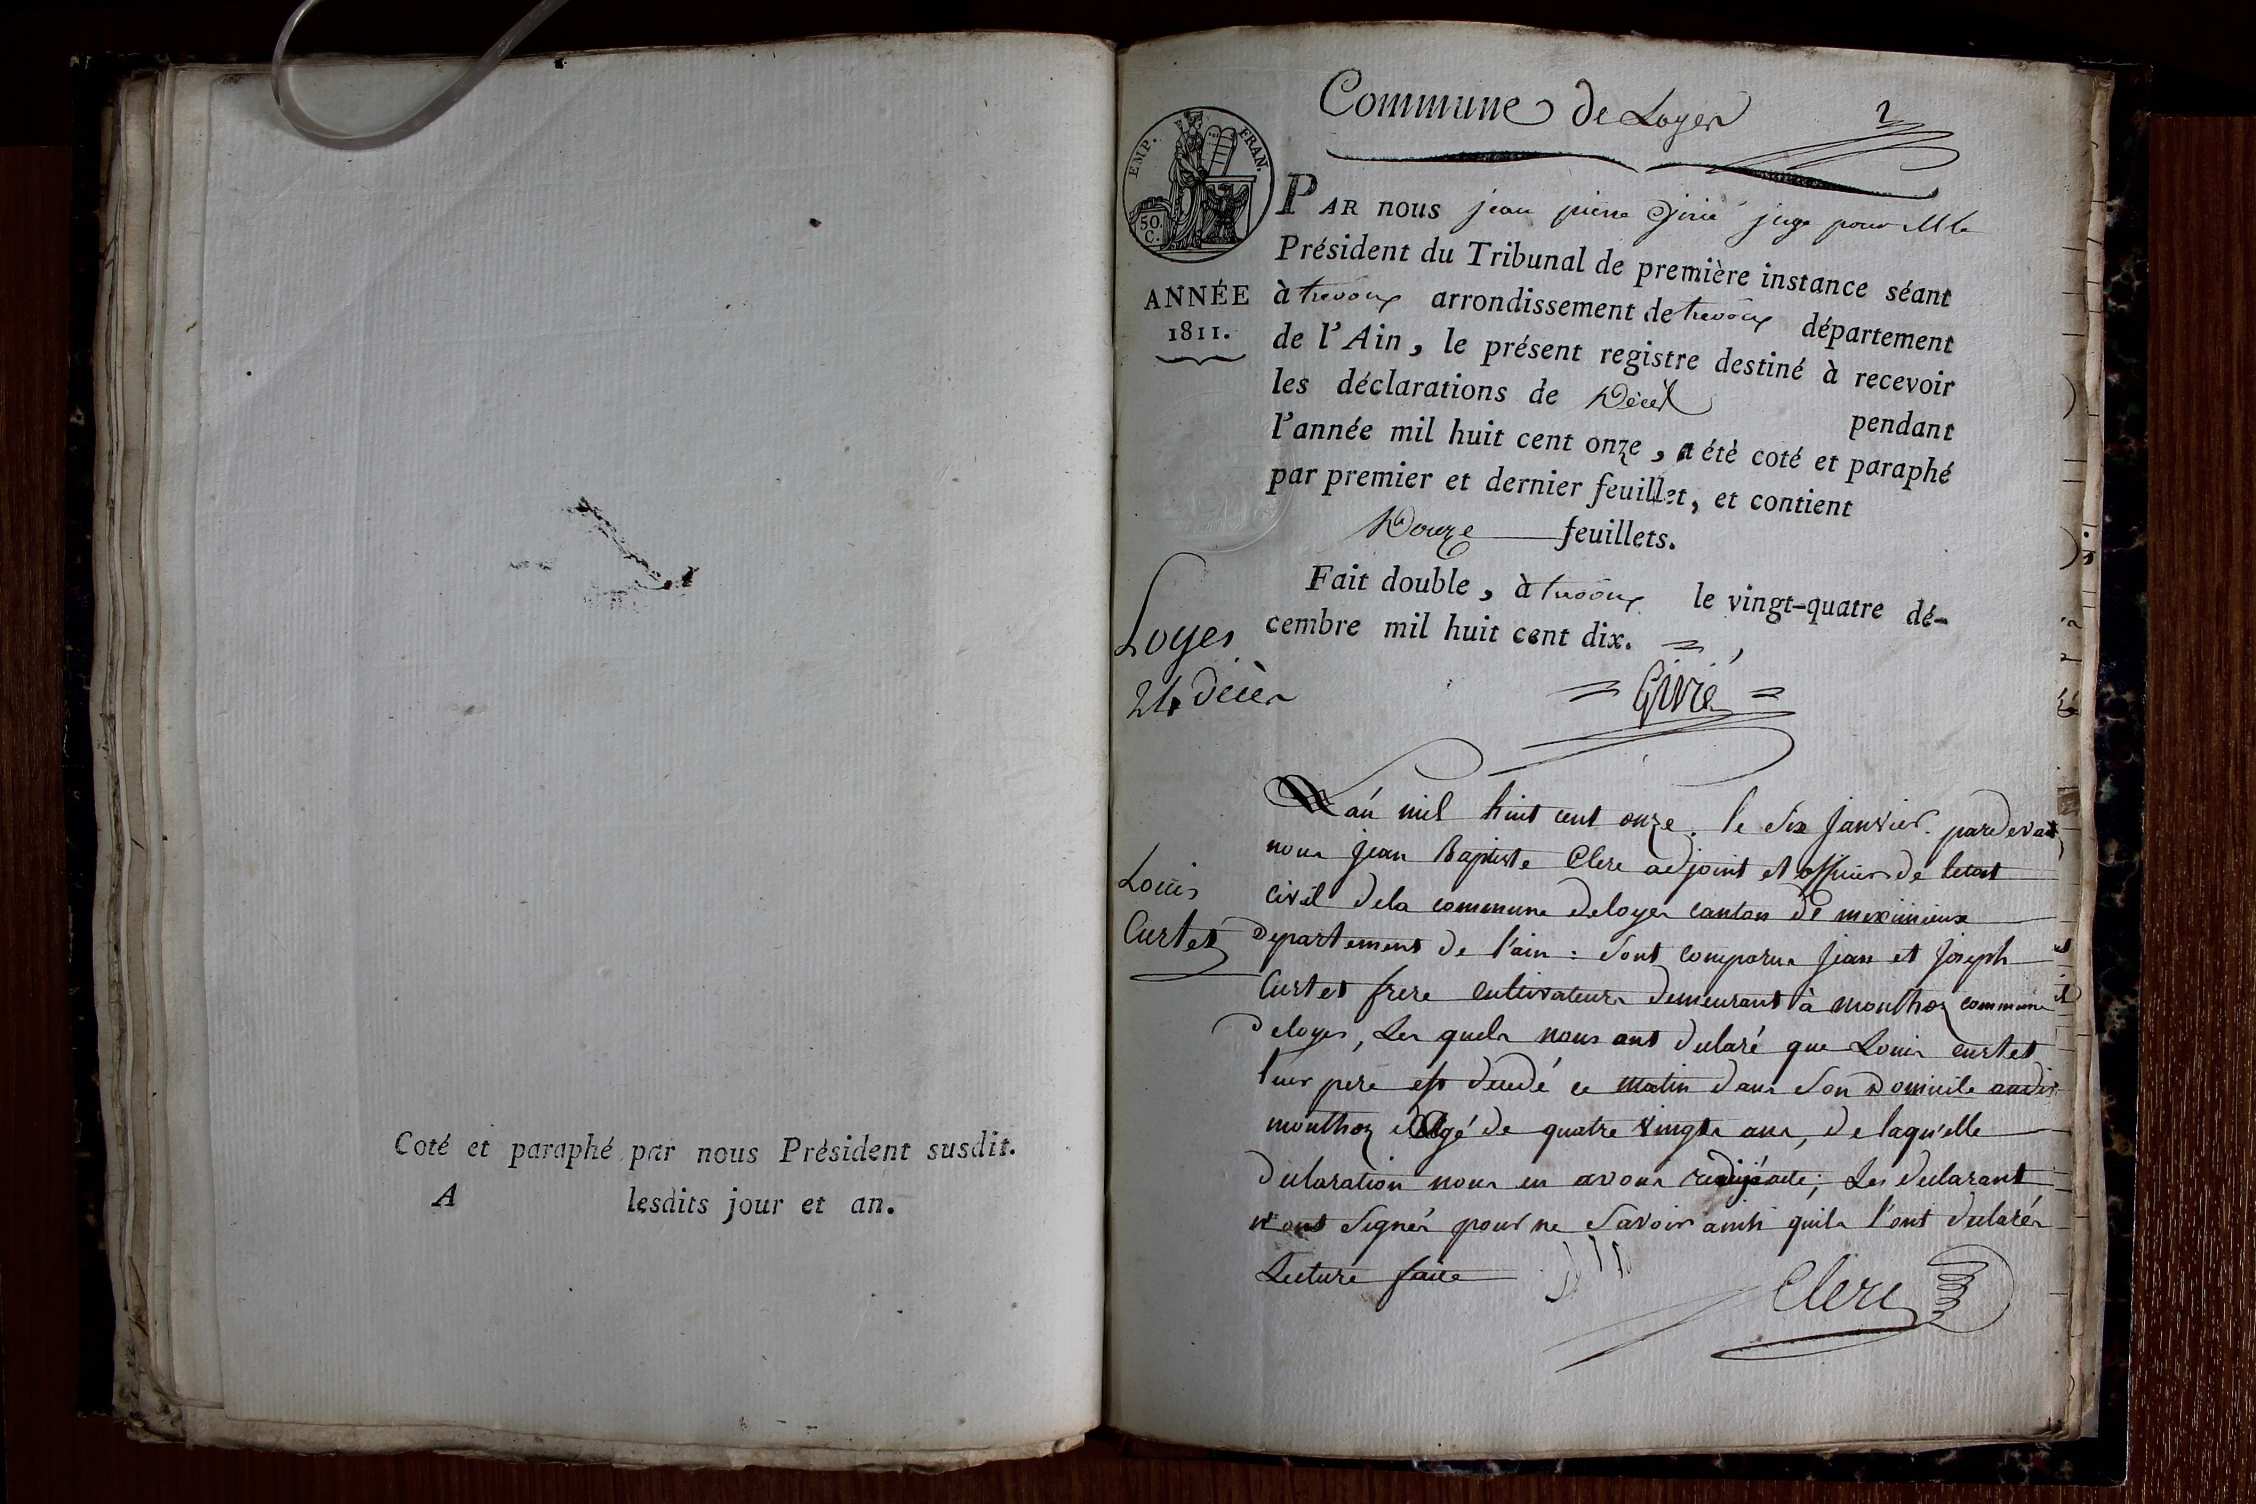 Coté et paraphé par nous Président susdit.
A lesdits jour et an.
Commune de Loyes
2
EMP. FRAN.
50.
C.
ANNÉE
1811.
PAR nous jean pierre Givié juge pour M le
Président du Tribunal de première instance séant
à trevoux arrondissement de trevoux département
de l'Ain, le présent registre destiné à recevoir
les déclarations de Décès pendant
l'année mil huit cent onze, a été coté et paraphé
par premier et dernier feuillet, et contient
Douze feuillets.
Fait double, à trevoux le vingt-quatre dé-
cembre mil huit cent dix.
Loyes
24 décès
Givié
Louis
Curtet
L'an mil huit cent onze. le six Janvier. pardevant
nous jean Baptiste Clerc adjoint et officier de letat
civil dela commune deloyes canton de meximieux
departement de l'ain : sont comparus jean et joseph
Curtet frere cultivateurs demeurant à mouthoz commune
deloyes, Les quels nous ont declaré que Louis curtet
leur pere est decedé ce matin dans son domicile audit
mouthoz Agé de quatre vingts ans, de laqu'elle
declaration nous en avons redijé acte; Les declarant
n'ont signés pour ne savoir ainsi quils l'ont declarés
Lecture faite
Clerc